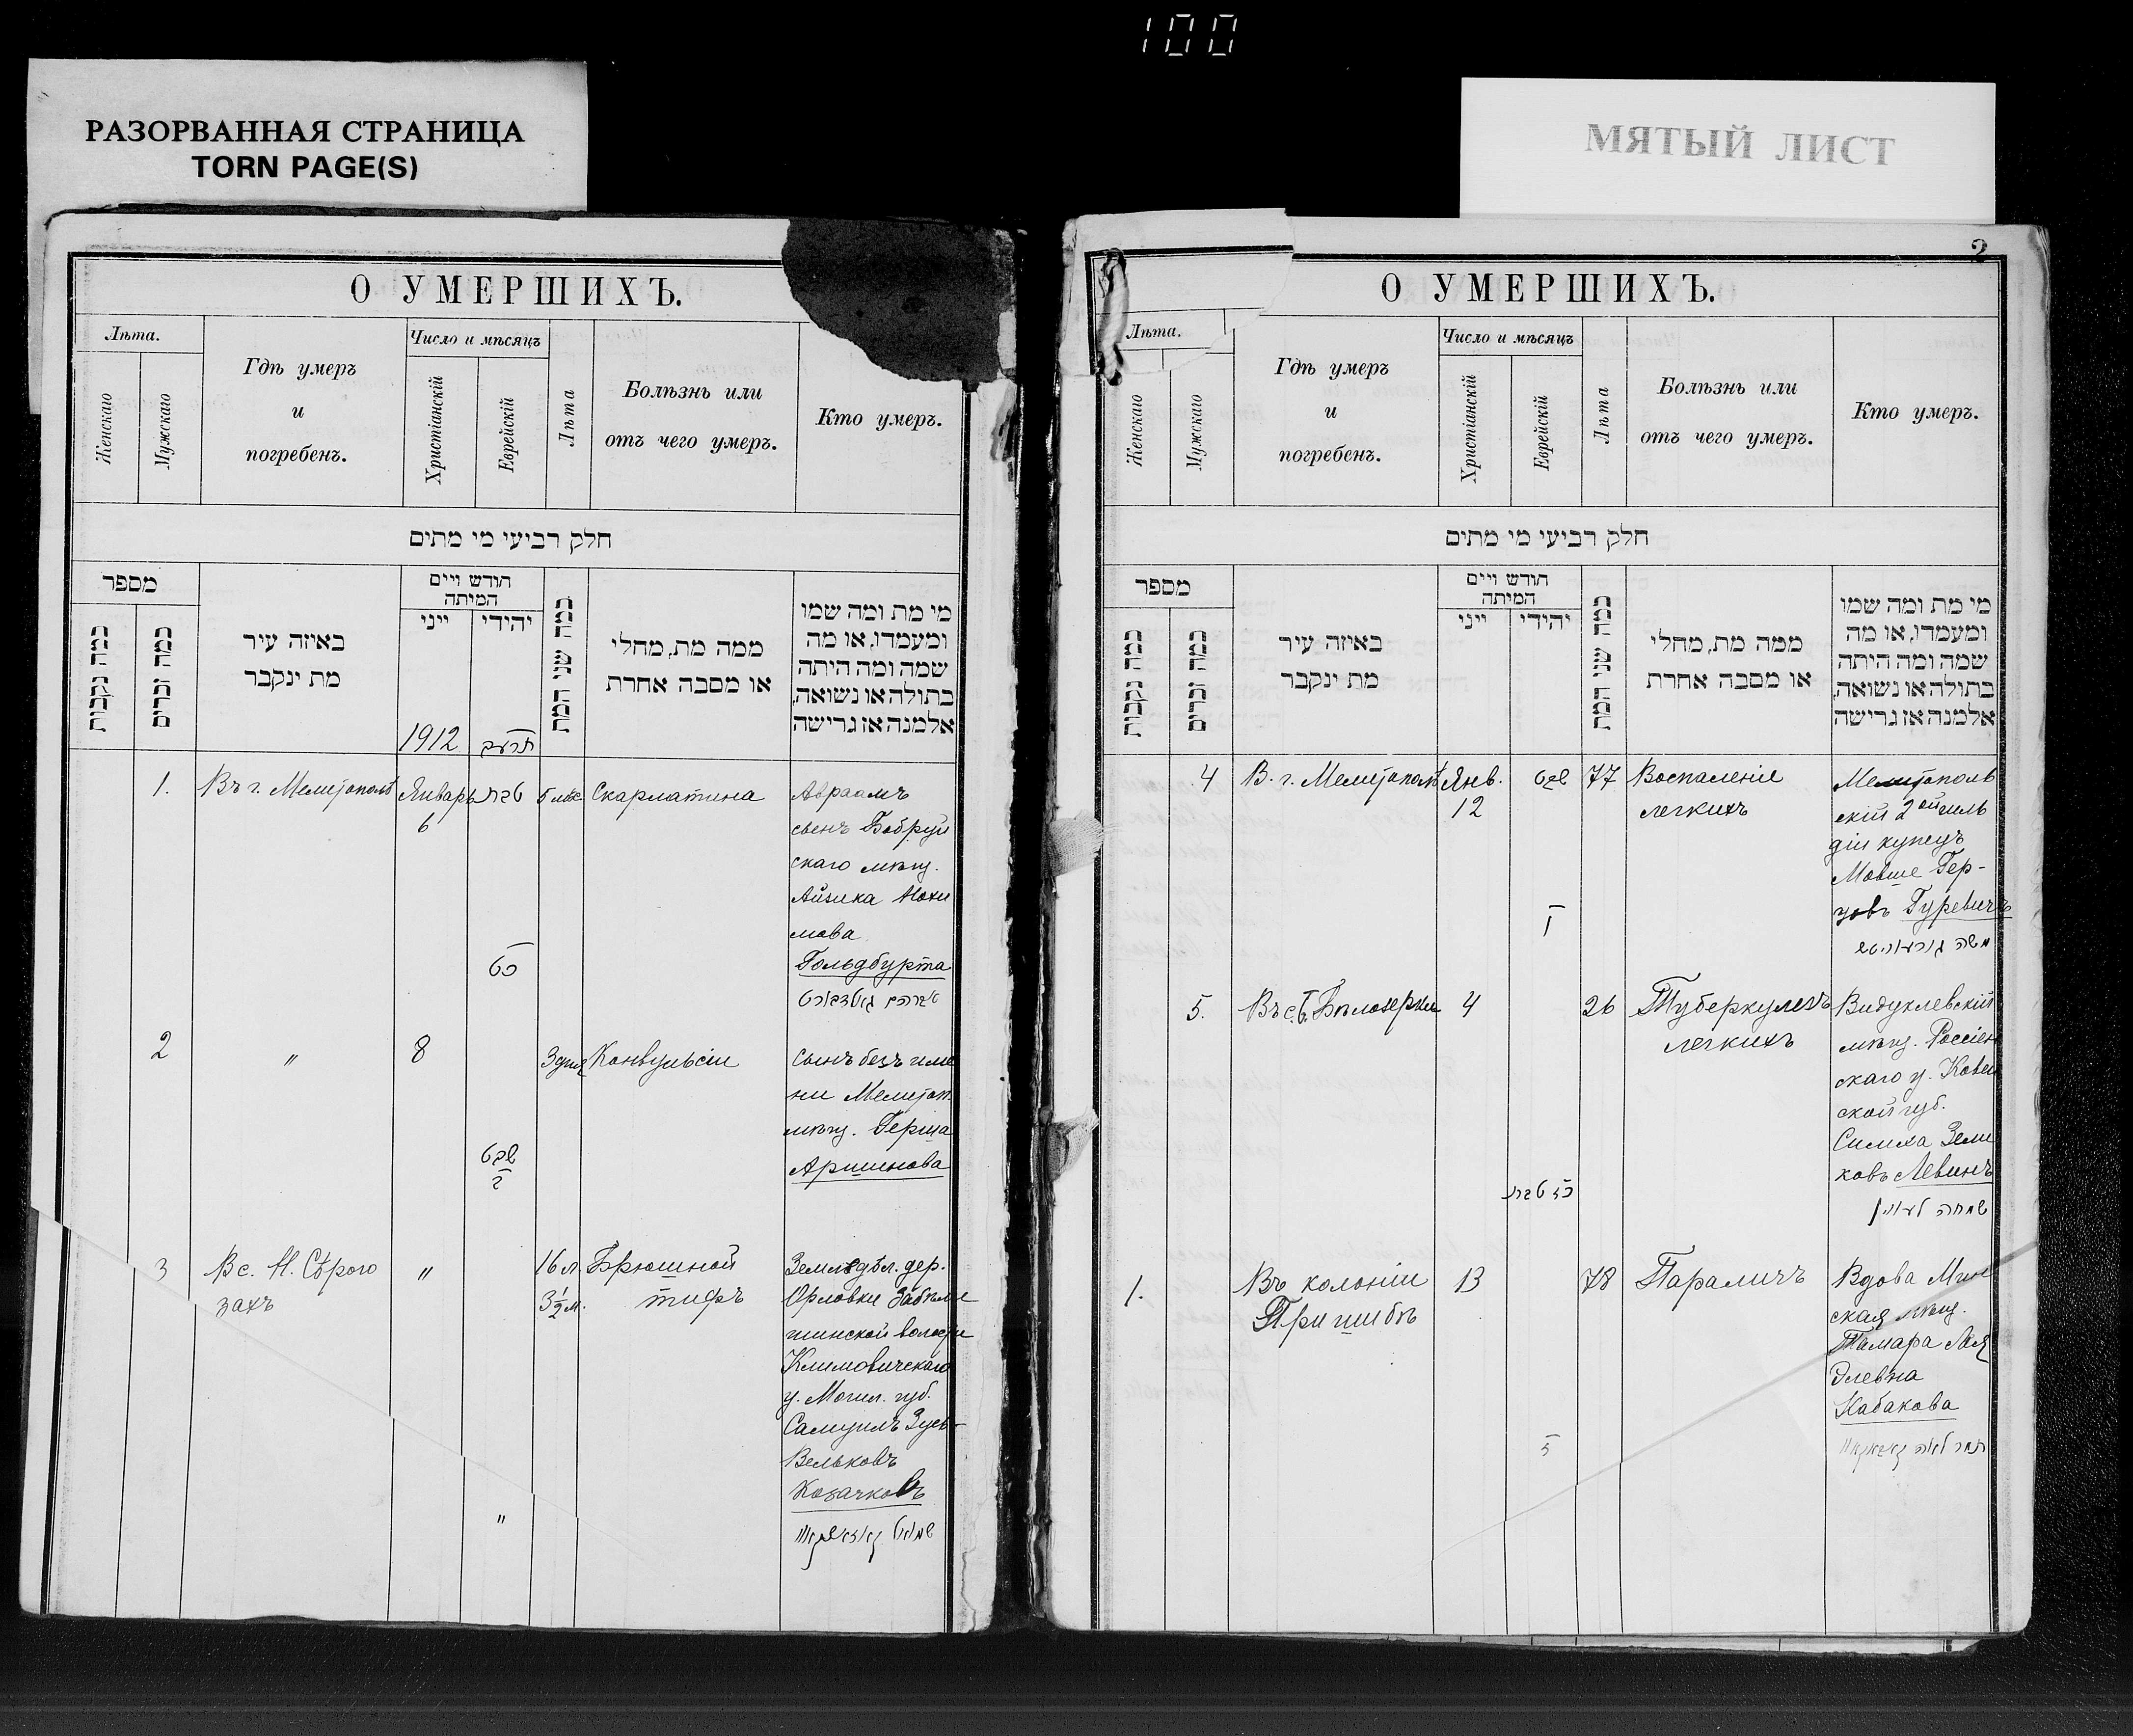 100
РАЗОРВАННАЯ СТРАНИЦА
TORN PAGE(S)
МЯТЫЙ ЛИСТ
О УМЕРШИХЪ.
Лѣта.
Женскаго
Мужскаго
Гдѣ умеръ
и
погребенъ.
Число и мѣсяцъ
Христіанскій
Еврейскій
Лѣта
Болѣзнь или
отъ чего умеръ.
Кто умеръ.
חלק רביעי מי מתים
מספר
כמה נקבות
כמה זכרים
באיזה עיר
מת ינקבר
חודש ויים
המיתה
ייני
יהודי
1912
תרעב
כמה שני המת
ממה מת, מחלי
או מסבה אחרת
מי מת ומה שמו
ומעמדו, או מה
שמה ומה היתה
בתולה או נשואה,
אלמנה אז גרישה
1.
Въ г. Мелитополѣ
Январь
6
טבת
כט
5 мѣс
Скарлатина
Авраамъ
сынъ Бобруй
скаго мѣщ.
Айзика Нохи
мова
Гольдбурта
אברהם גולדבורט
2
"
8
שבט
ב
3 дня
Конвульсіи
Сынъ безъ име
ни Мелитоп.
мѣщ. Герша
Аршинова
3
В с. Н. Сѣрого
захъ
"
"
16 л.
3½ м.
Брюшной
тифъ
Земледѣл. дер.
Орловки
волости
Климовичскаго
у. Могил. губ.
Самуилъ Зусь-
Вельковъ
Козачковъ
שמואל
2
О УМЕРШИХЪ.
Лѣта.
Женскаго
Мужскаго
Гдѣ умеръ
и
погребенъ.
Число и мѣсяцъ
Христіанскій
Еврейскій
Лѣта
Болѣзнь или
отъ чего умеръ.
Кто умеръ.
חלק רביעי מי מתים
מספר
כמה נקבות
כמה זכרים
באיזה עיר
מת ינקבר
חודש ויים
המיתה
ייני
יהודי
כמה שני המת
ממה מת, מחלי
או מסבה אחרת
מי מת ומה שמו
ומעמדו, או מה
שמה ומה היתה
בתולה או נשואה,
אלמנה אז גרישה
4
В. г. Мелитополѣ
Янв.
12
שבט
ו
77
Воспаленіе
легкихъ
Мелитополь
скій 2ой гиль
діи купецъ
Мовше Гер-
цовъ Гуревичъ
משה גורעוויטש
5.
Въ с. Б. Бѣлозеркѣ
4
כז טבת
26
Туберкулезъ
легкихъ
Видуклевскій
мѣщ. Россіен
скаго у. Ковен
ской губ.
Симха Зели
ковъ Левинъ
שמחה לעווין
1.
Въ колоніи
Пришибѣ
13
ז
78
Параличъ
Вдова Мин
ская мѣщ.
Тамара Лея
Элевна
Кабакова
תמר לאה קאבאקאוו